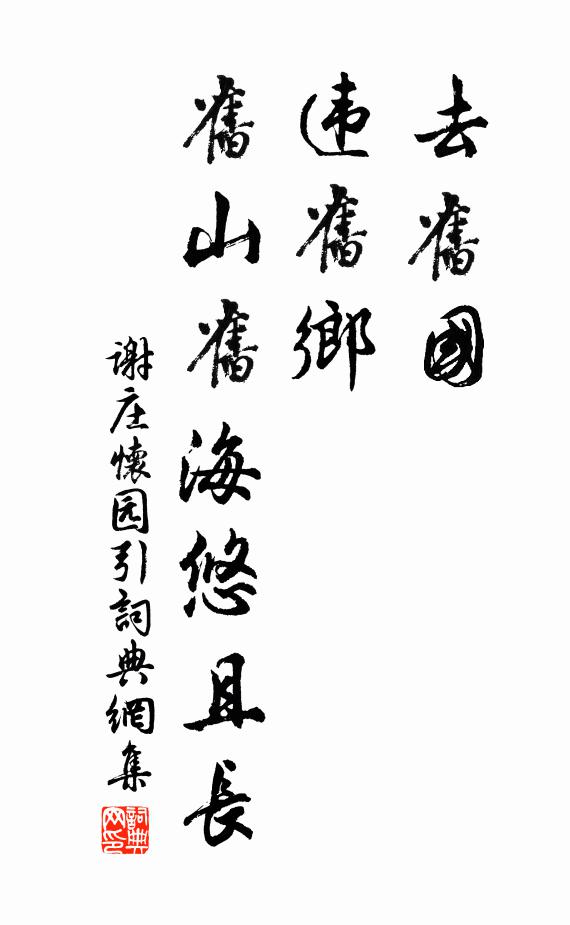 去舊國
违舊鄉
舊山舊海悠且長
谢庄懷园引詞典網集
詞典网印